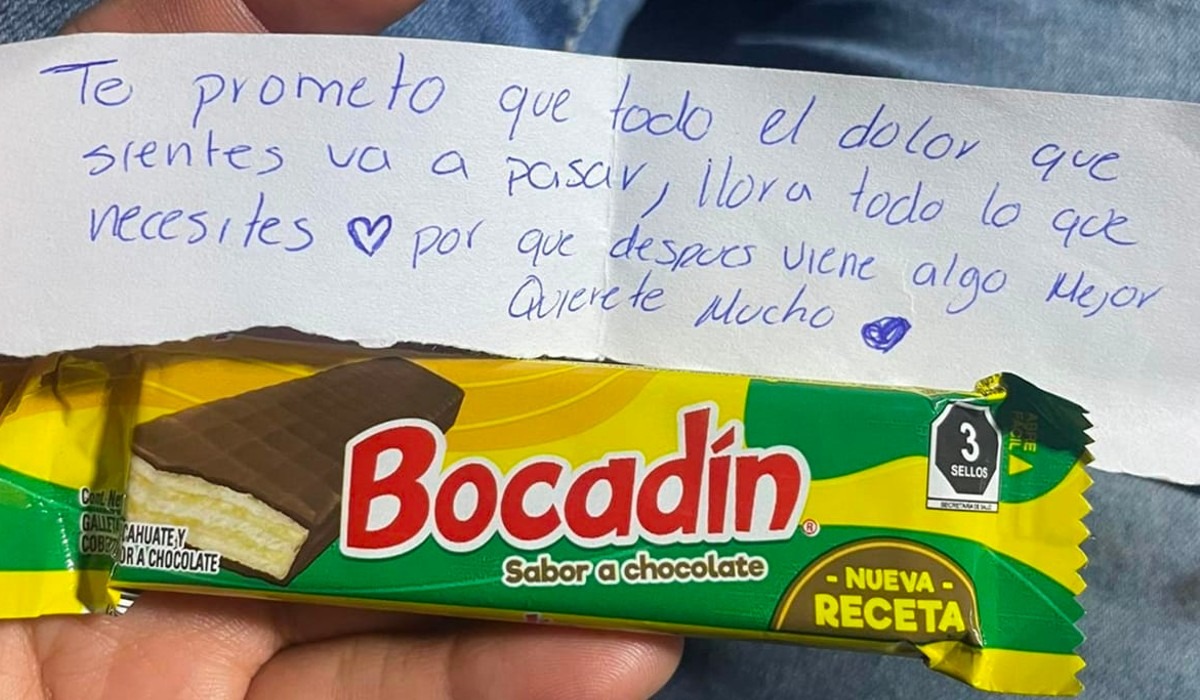 Te prometo que todo el dolor que
sientes va a pasar, llora todo lo que
necesites ♡ por que despues viene algo Mejor
Quierete Mucho
Bocadín®
Sabor a chocolate
3
SELLOS
SECRETARÍA DE SALUD
ABRE
FÁCIL
- NUEVA -
RECETA
Cont. Net
GALLET
CAHUATE Y
COB
OR A CHOCOLATE